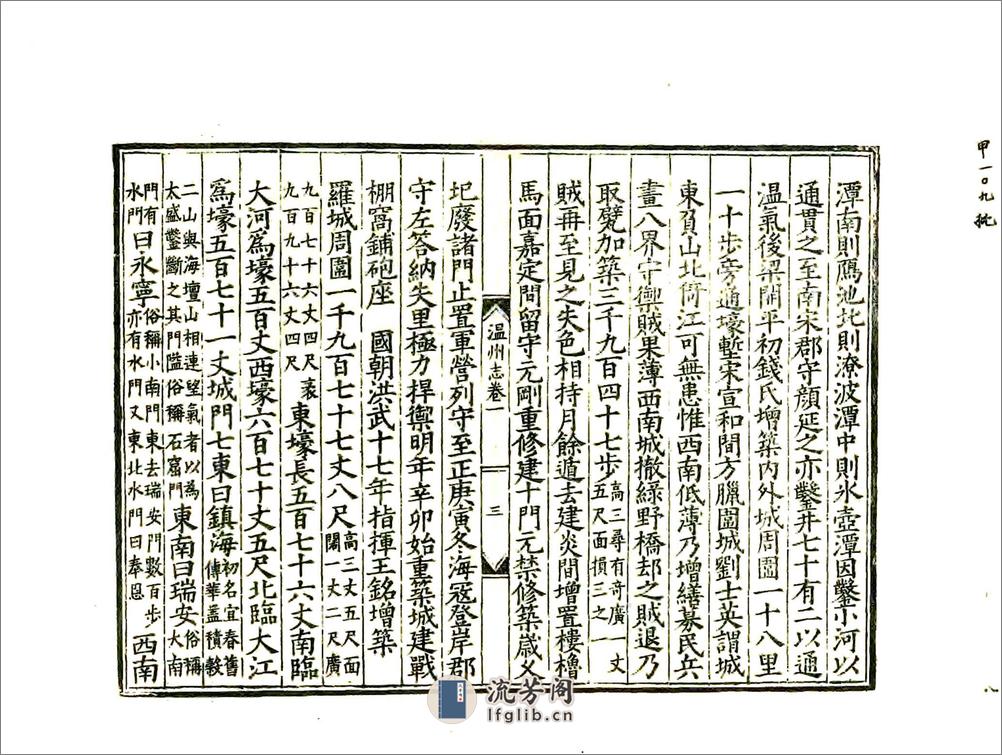 潭南則鴈池北則潦波潭中則氷壺潭因鑿小河以
通貫之至南宋郡守顔延之亦鑿井七十有二以通
温氣後梁開平初錢氏增築内外城周圍一十八里
一十步旁通壕塹宋宣和間方臘圍城劉士英謂城
東負山北倚江可無患惟西南低薄乃增繕募民兵
畫八界守禦賊果薄西南城撤緑野橋却之賊退乃
取甓加築三千九百四十七步高三尋有奇廣一丈五尺面損三之一
賊再至見之失色相持月餘遁去建炎間增置樓櫓
馬面嘉定間留守元剛重修建十門元禁修築歲久
温州志卷一
三
圮廢諸門止置軍營列守至正庚寅冬海寇登岸郡
守左答納失里極力捍禦明年辛卯始重築城建戰
棚窩鋪砲座 國朝洪武十七年指揮王銘增築
羅城周圍一千九百七十七丈八尺高三丈五尺面闊一丈二尺廣
九百七十六丈四尺袤九百九十六丈四尺東壕長五百七十六丈南臨
大河爲壕五百丈西壕六百七十丈五尺北臨大江
爲壕五百七十一丈城門七東曰鎮海初名宜春舊傳華蓋積穀
二山與海壇山相連望氣者以爲太盛鑿斷之其門隘俗稱石窟門東南曰瑞安俗稱大南
門有水門曰永寧俗稱小南門東去瑞安門數百步亦有水門又東北水門曰奉恩西南
甲一〇九批
八
流芳阁
lfglib.cn